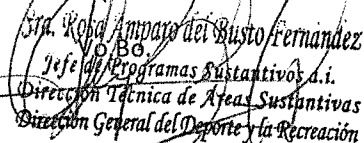 Sra. Rosa Amparo del Busto Fernández
Vo.Bo.
Jefe de Programas Sustantivos a.i.
Dirección Técnica de Áreas Sustantivas
Dirección General del Deporte y la Recreación